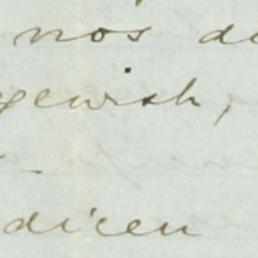 nos di
gewish,
dicen